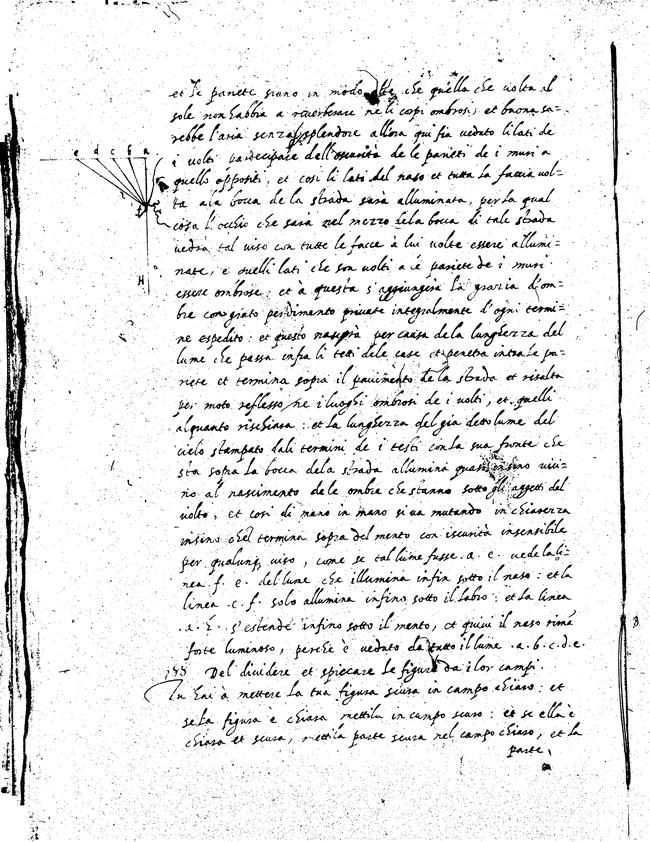 e d c b a
f
H
et le pariete siano in modo alte che quella che volta al
sole non habbia a reverberare ne li corpi ombrosi, et buona sa=
rebbe l'aria senza splendore allora qui fia veduto li lati de
i volti participare dell'oscurità de le parieti de i muri a
quello oppositi, et così li lati del naso et tutta la faccia vol=
ta ala bocca de la strada sarà alluminata, per la qual
cosa l'occhio che sarà nel mezzo dela bocca di tale strada
vedrà tal viso con tutte le facce à lui volte essere allumi=
nate, e quelli lati che son volti a le pariete de i muri
essere ombrose: et à questa s'aggiungerà la grazia d'om=
bre con grato perdimento private integralmente d'ogni termi=
ne espedito: et questo nascerà per causa de la lunghezza del
lume che passa infra li tetti dele case et penetra intra le pa=
riete et termina sopra il pavimento de la strada et risalta
per moto reflesso ne i luoghi ombrosi de i volti, et quelli
alquanto rischiara: et la lunghezza del gia detto lume del
cielo stampato dali termini de i tetti con la sua fronte che
sta sopra la bocca dela strada allumina quasi insino vici=
no al nascimento dele ombre che stanno sotto gli aggetti del
volto, et così di mano in mano si va mutando in chiarezza
insino che termina sopra del mento con iscurità insensibile
per qualunq, viso, come se tal lume fusse .a. e. vede la li=
nea .f. e. del lume che illumina infin sotto il naso: et la
linea .c. f. solo allumina infino sotto il labro: et la linea
.a. s'estende infino sotto il mento, et quivi il naso rimã
forte luminoso, perche è veduto da tutto il lume .a.b.c.d.e.
Del dividere et spiccare le figure da i lor campi.
Tu hai à mettere la tua figura scura in campo chiaro: et
se la figura è chiara mettila in campo scuro: et se ella è
chiara et scura, metti la parte scura nel campo chiaro, et la
parte